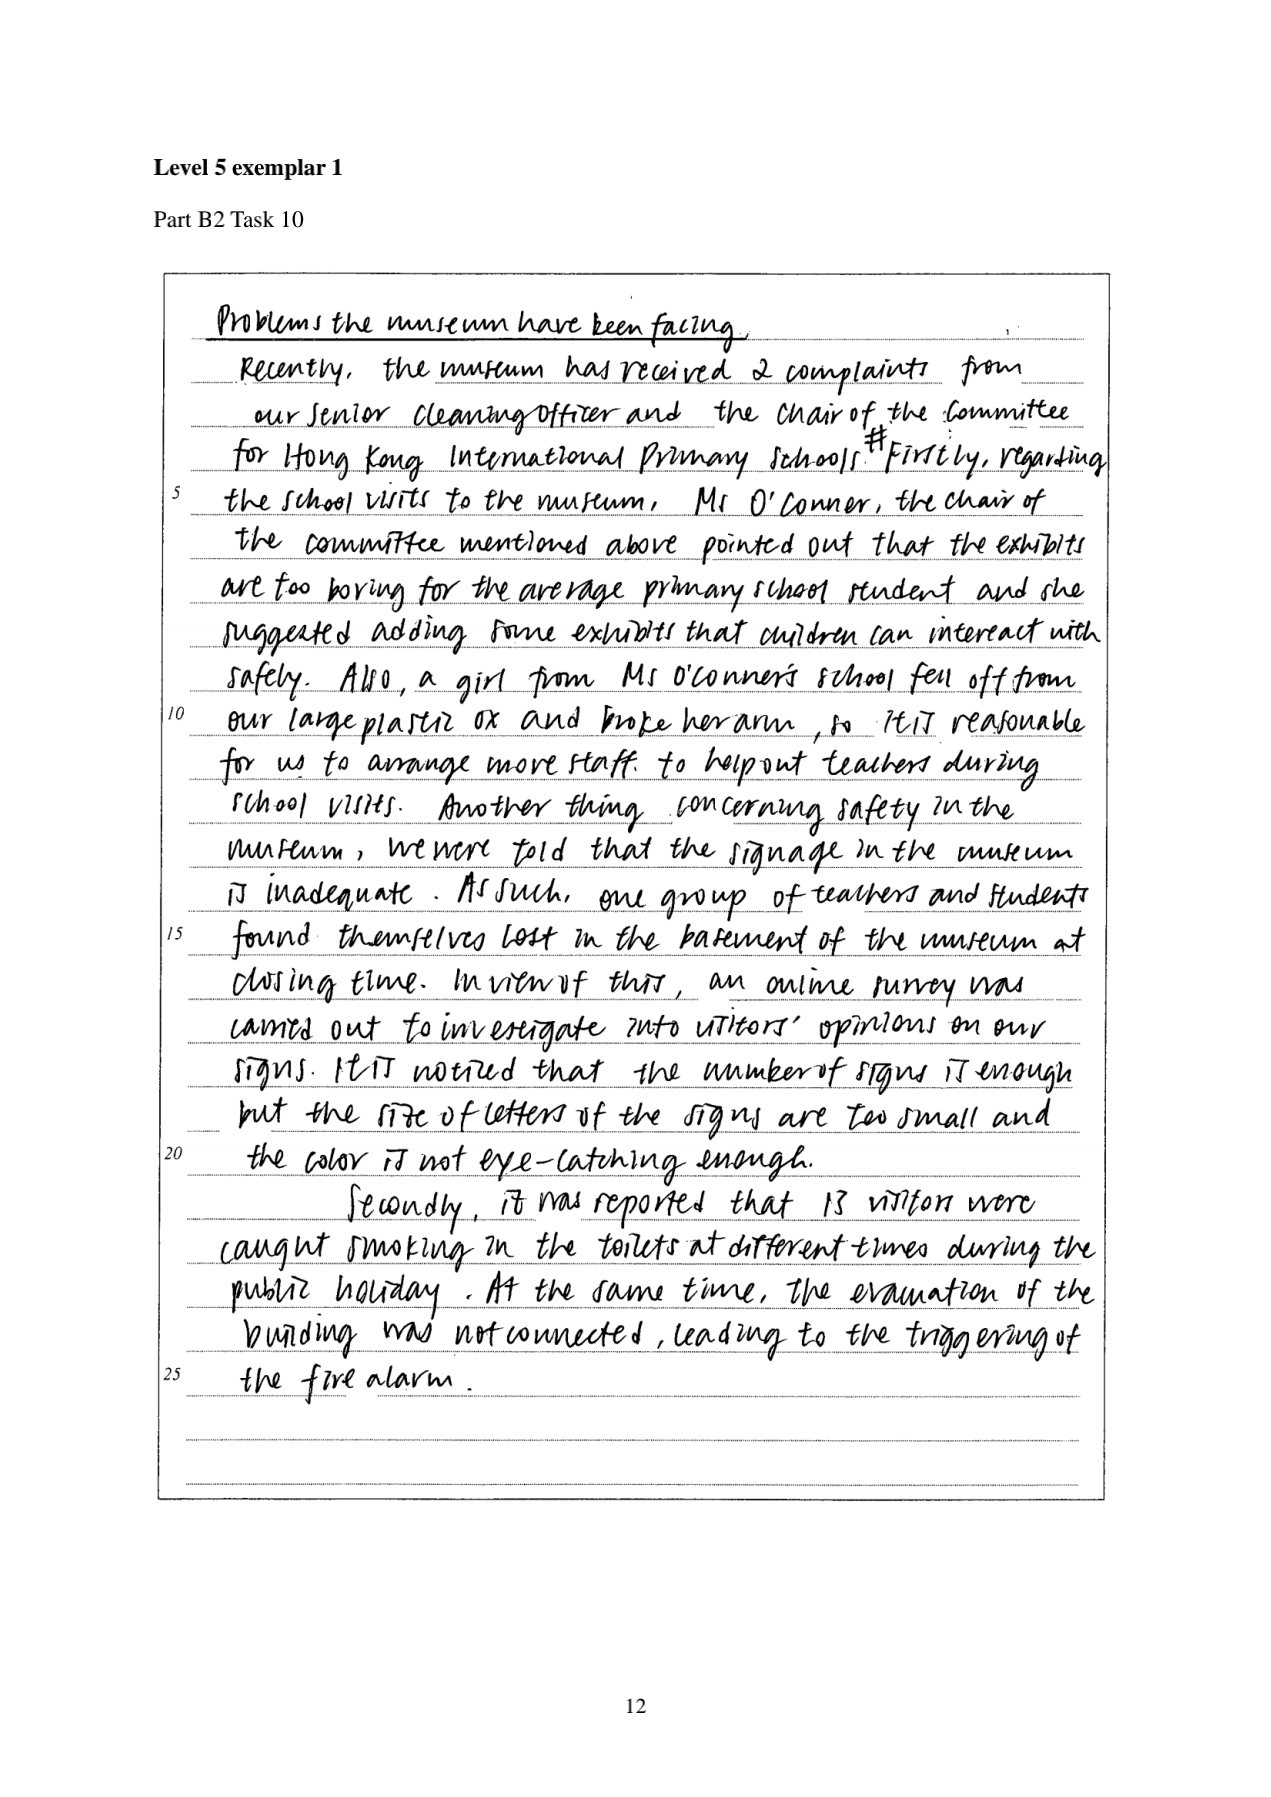 Level 5 exemplar 1
Part B2 Task 10
Problems the museum have been facing
Recently, the museum has received 2 complaints from
our senior cleaning officer and the chair of the Committee
for Hong Kong International Primary Schools. # Firstly, regarding
5 the school visits to the museum, Ms O'Conner, the chair of
the committee mentioned above pointed out that the exhibits
are too boring for the average primary school student and she
suggested adding some exhibits that children can intereact with
safely. Also, a girl from Ms O'Conner's school fell off from
10 our large plastic ox and broke her arm, so it is reasonable
for us to arrange more staff to help out teachers during
school visits. Another thing concerning safety in the
museum, we were told that the signage in the museum
is inadequate. As such, one group of teachers and students
15 found themselves lost in the basement of the museum at
closing time. In view of this, an online survey was
carried out to investigate into visitors' opinions on our
signs. It is noticed that the number of signs is enough
but the size of letters of the signs are too small and
20 the color is not eye-catching enough.
Secondly, it was reported that 13 visitors were
caught smoking in the toilets at different times during the
public holiday. At the same time, the evacuation of the
building was not connected, leading to the triggering of
25 the fire alarm.
12